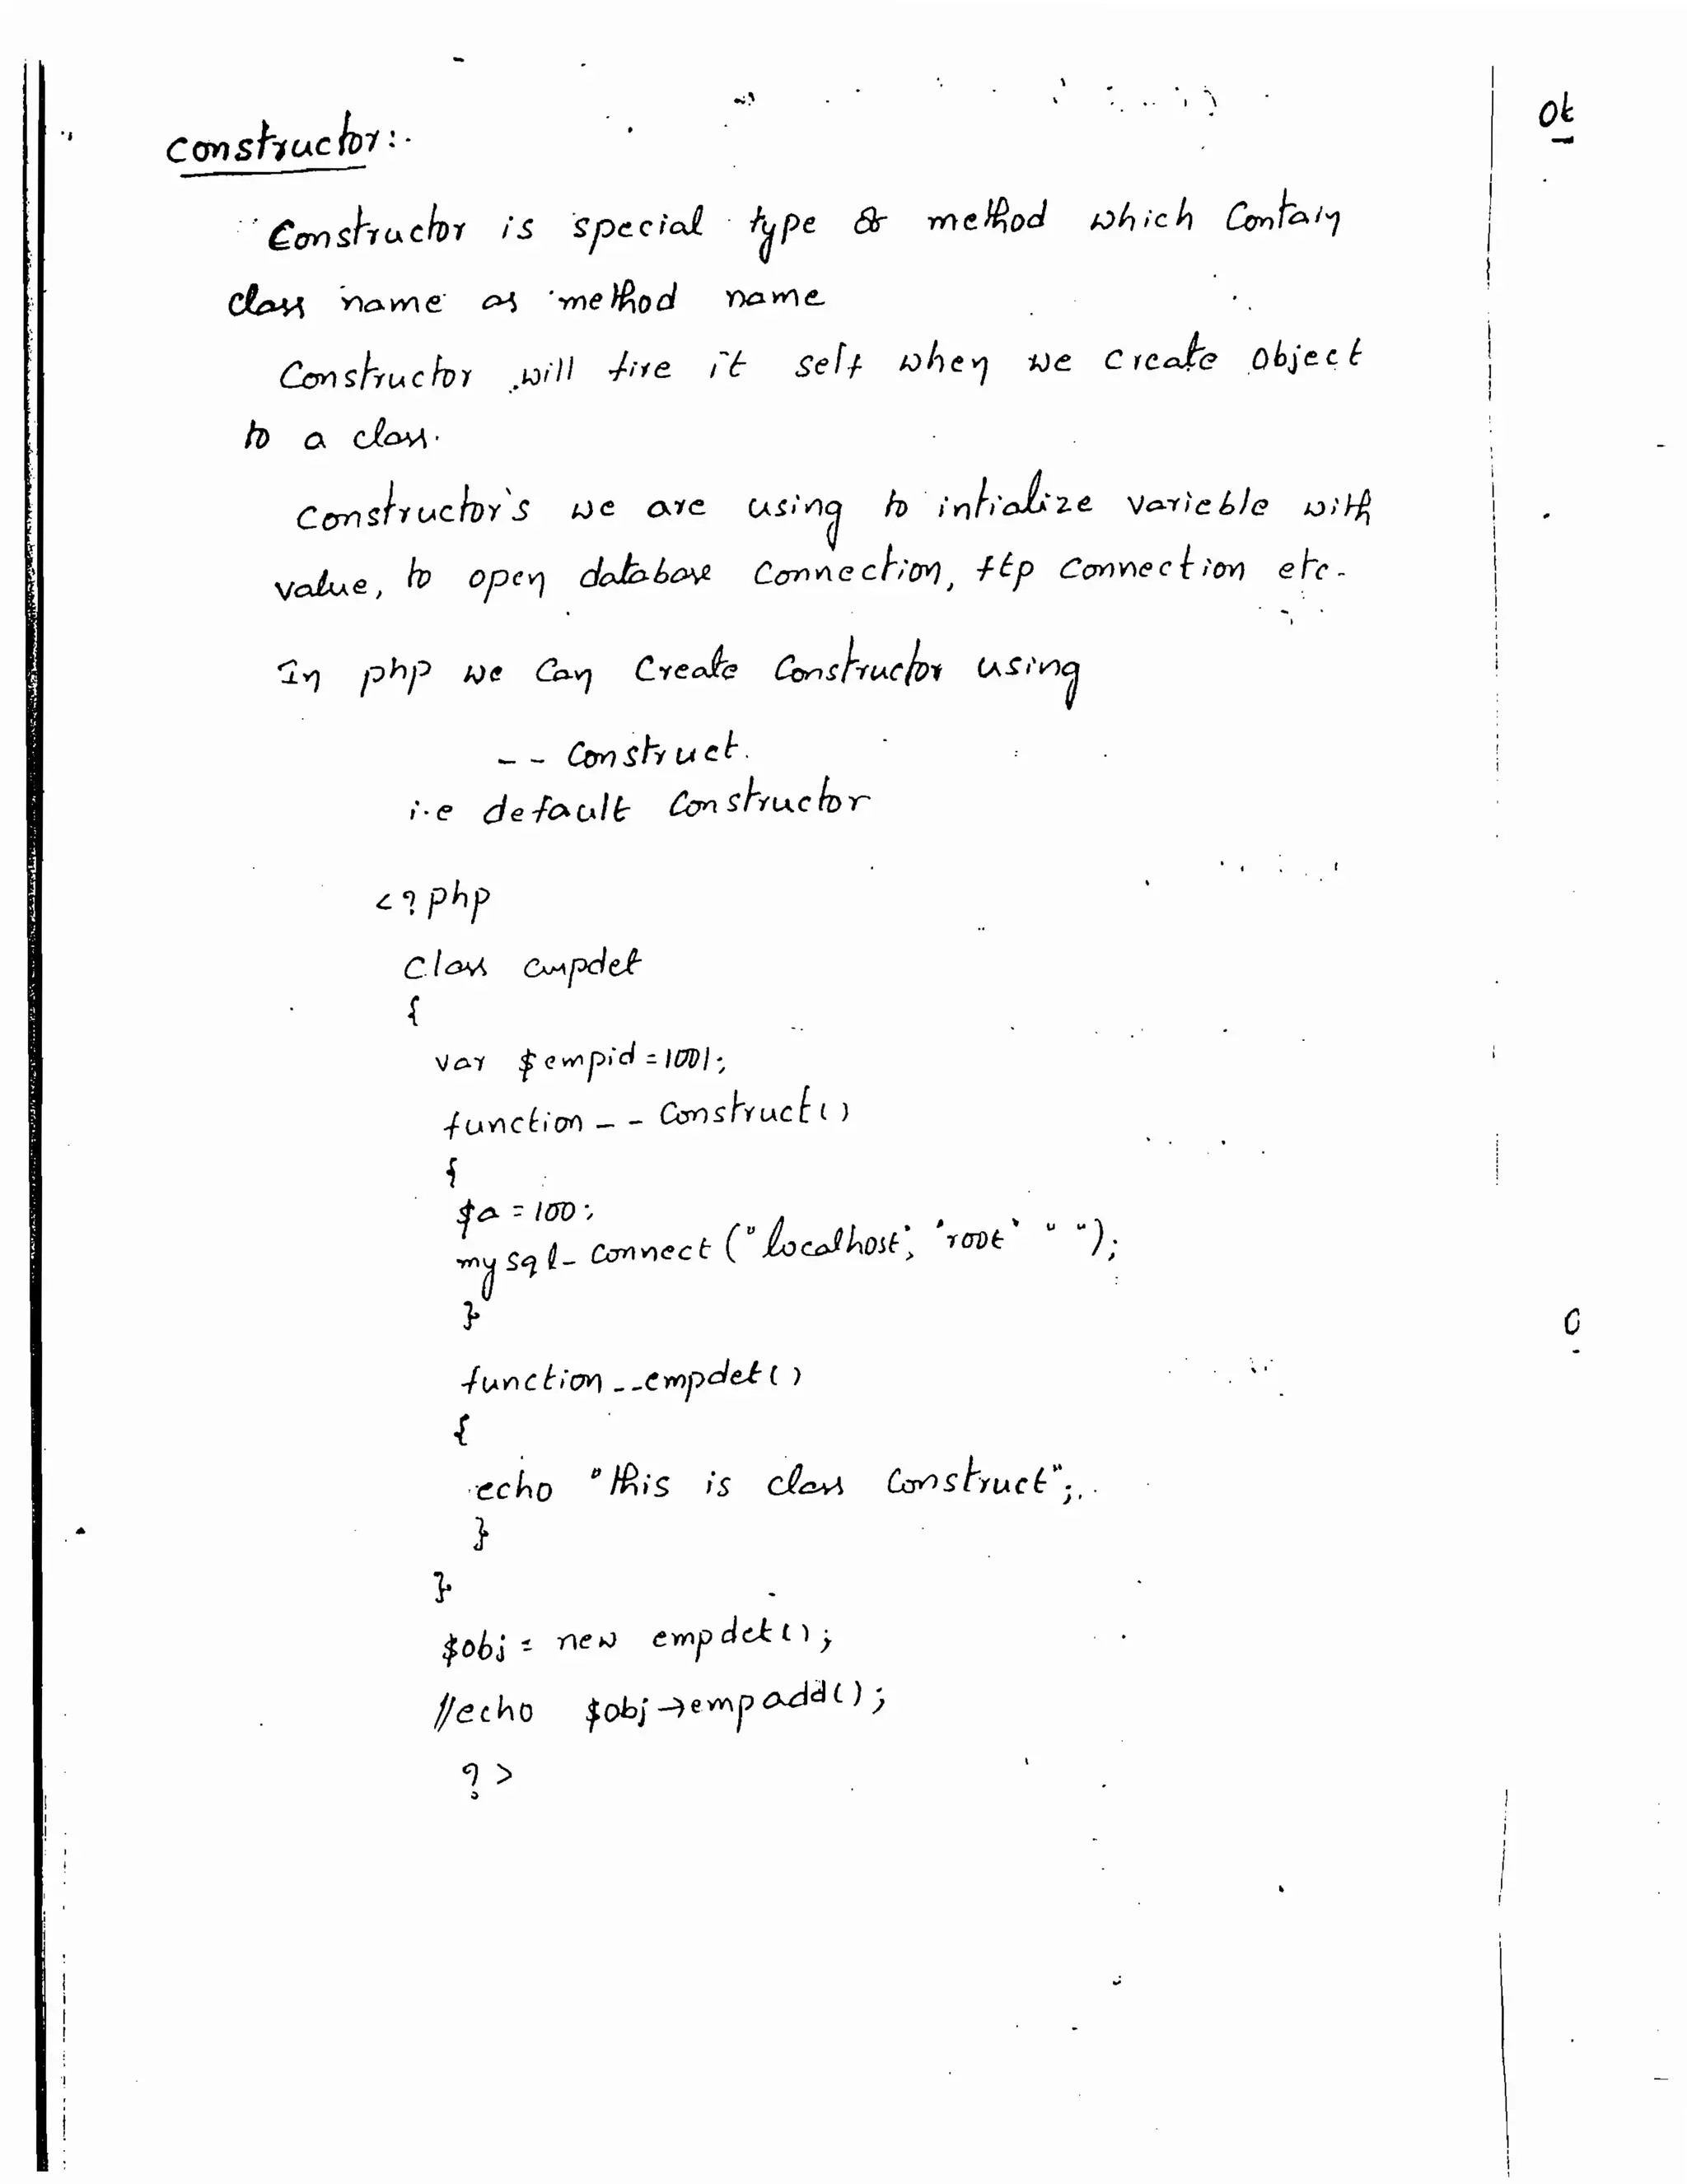 constructor:-
Constructor is special type of method which Contain
class name as method name
Constructor will fire it self when we create object
to a class.
constructor's we are using to intialize varieble with
value, to open database Connection, ftp Connection etc.
In php we can Create Constructor using
-- Construct.
i.e default Constructor
<?php
Class empdet
{
var $empid=1001;
function -- Construct()
{
$a=100;
mysql-connect ("localhost", "root" " ");
}
function --empdet()
{
echo "this is class Construct";
}
}
$obj = new empdet();
//echo $obj→empadd();
?>